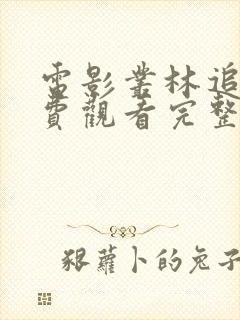 電影叢林追
費觀看完整
狠蘿卜的兔子